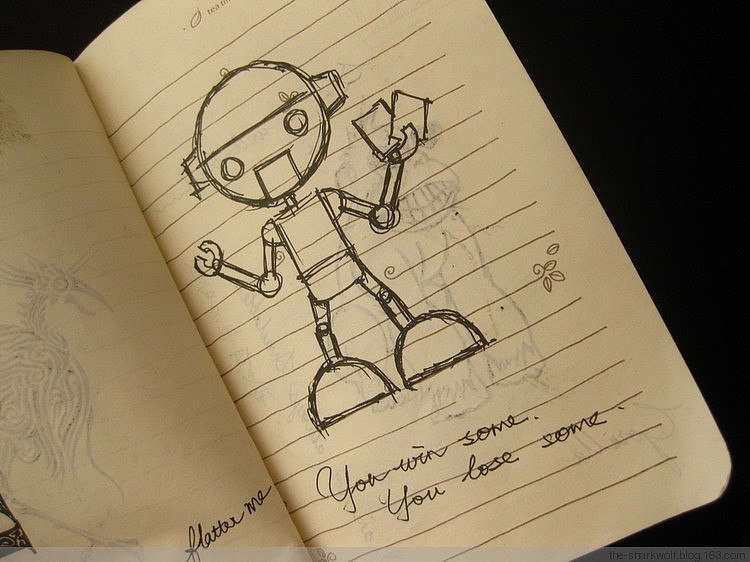 You win some.
You lose some.
flatter me
the-sharkwolf.blog.163.com